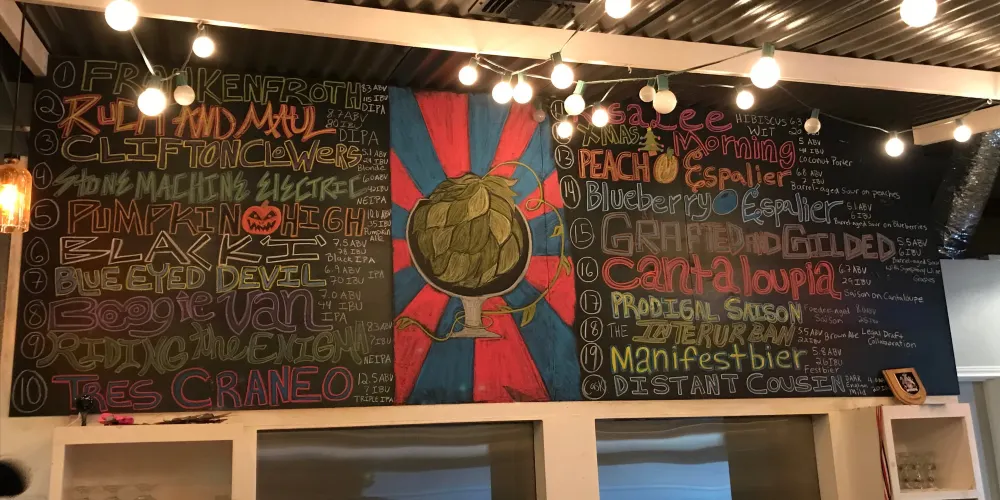 1 FRANKENFROTH 8.3 ABV
115 IBU
DIPA
2 RUCK AND MAUL 8.7 ABV
DIPA
3 CLIFTON CLOWERS
Blonde
4 STONE MACHINE ELECTRIC 6.0 ABV
NEIPA
5 PUMPKIN HIGH 10.0 ABV
15 IBU
Pumpkin Ale
6 BLACK I 7.5 ABV
78 IBU
Black IPA
7 BLUE EYED DEVIL 6.9 ABV
70 IBU
IPA
8 Boogie Van 7.0 ABV
44 IBU
IPA
9 RIDING the ENIGMA 8.3 ABV
7 IBU
NEIPA
10 TRES CRANEO 12.5 ABV
? IBU
TRIPLE IPA
Rosa Lee HIBISCUS WIT
XMAS Morning 5 ABV
Coconut Porter
13 PEACH Espalier 6.8 ABV
7 IBU
Barrel-aged Sour on peaches
14 Blueberry Espalier 5.1 ABV
6 IBU
Barrel-aged Sour on Blueberries
15 GRAFTED AND GILDED 5.5 ABV
6 IBU
Barrel-aged Sour
16 Cantaloupia 6.7 ABV
29 IBU
Saison on Cantaloupe
17 PRODIGAL SAISON Foeder-aged
Saison
18 THE INTERURBAN 5.5 ABV
Brown Ale
Legal Draft
Collaboration
19 Manifestbier 5.8 ABV
26 IBU
Festbier
CASK DISTANT COUSIN DARK
English
Mild